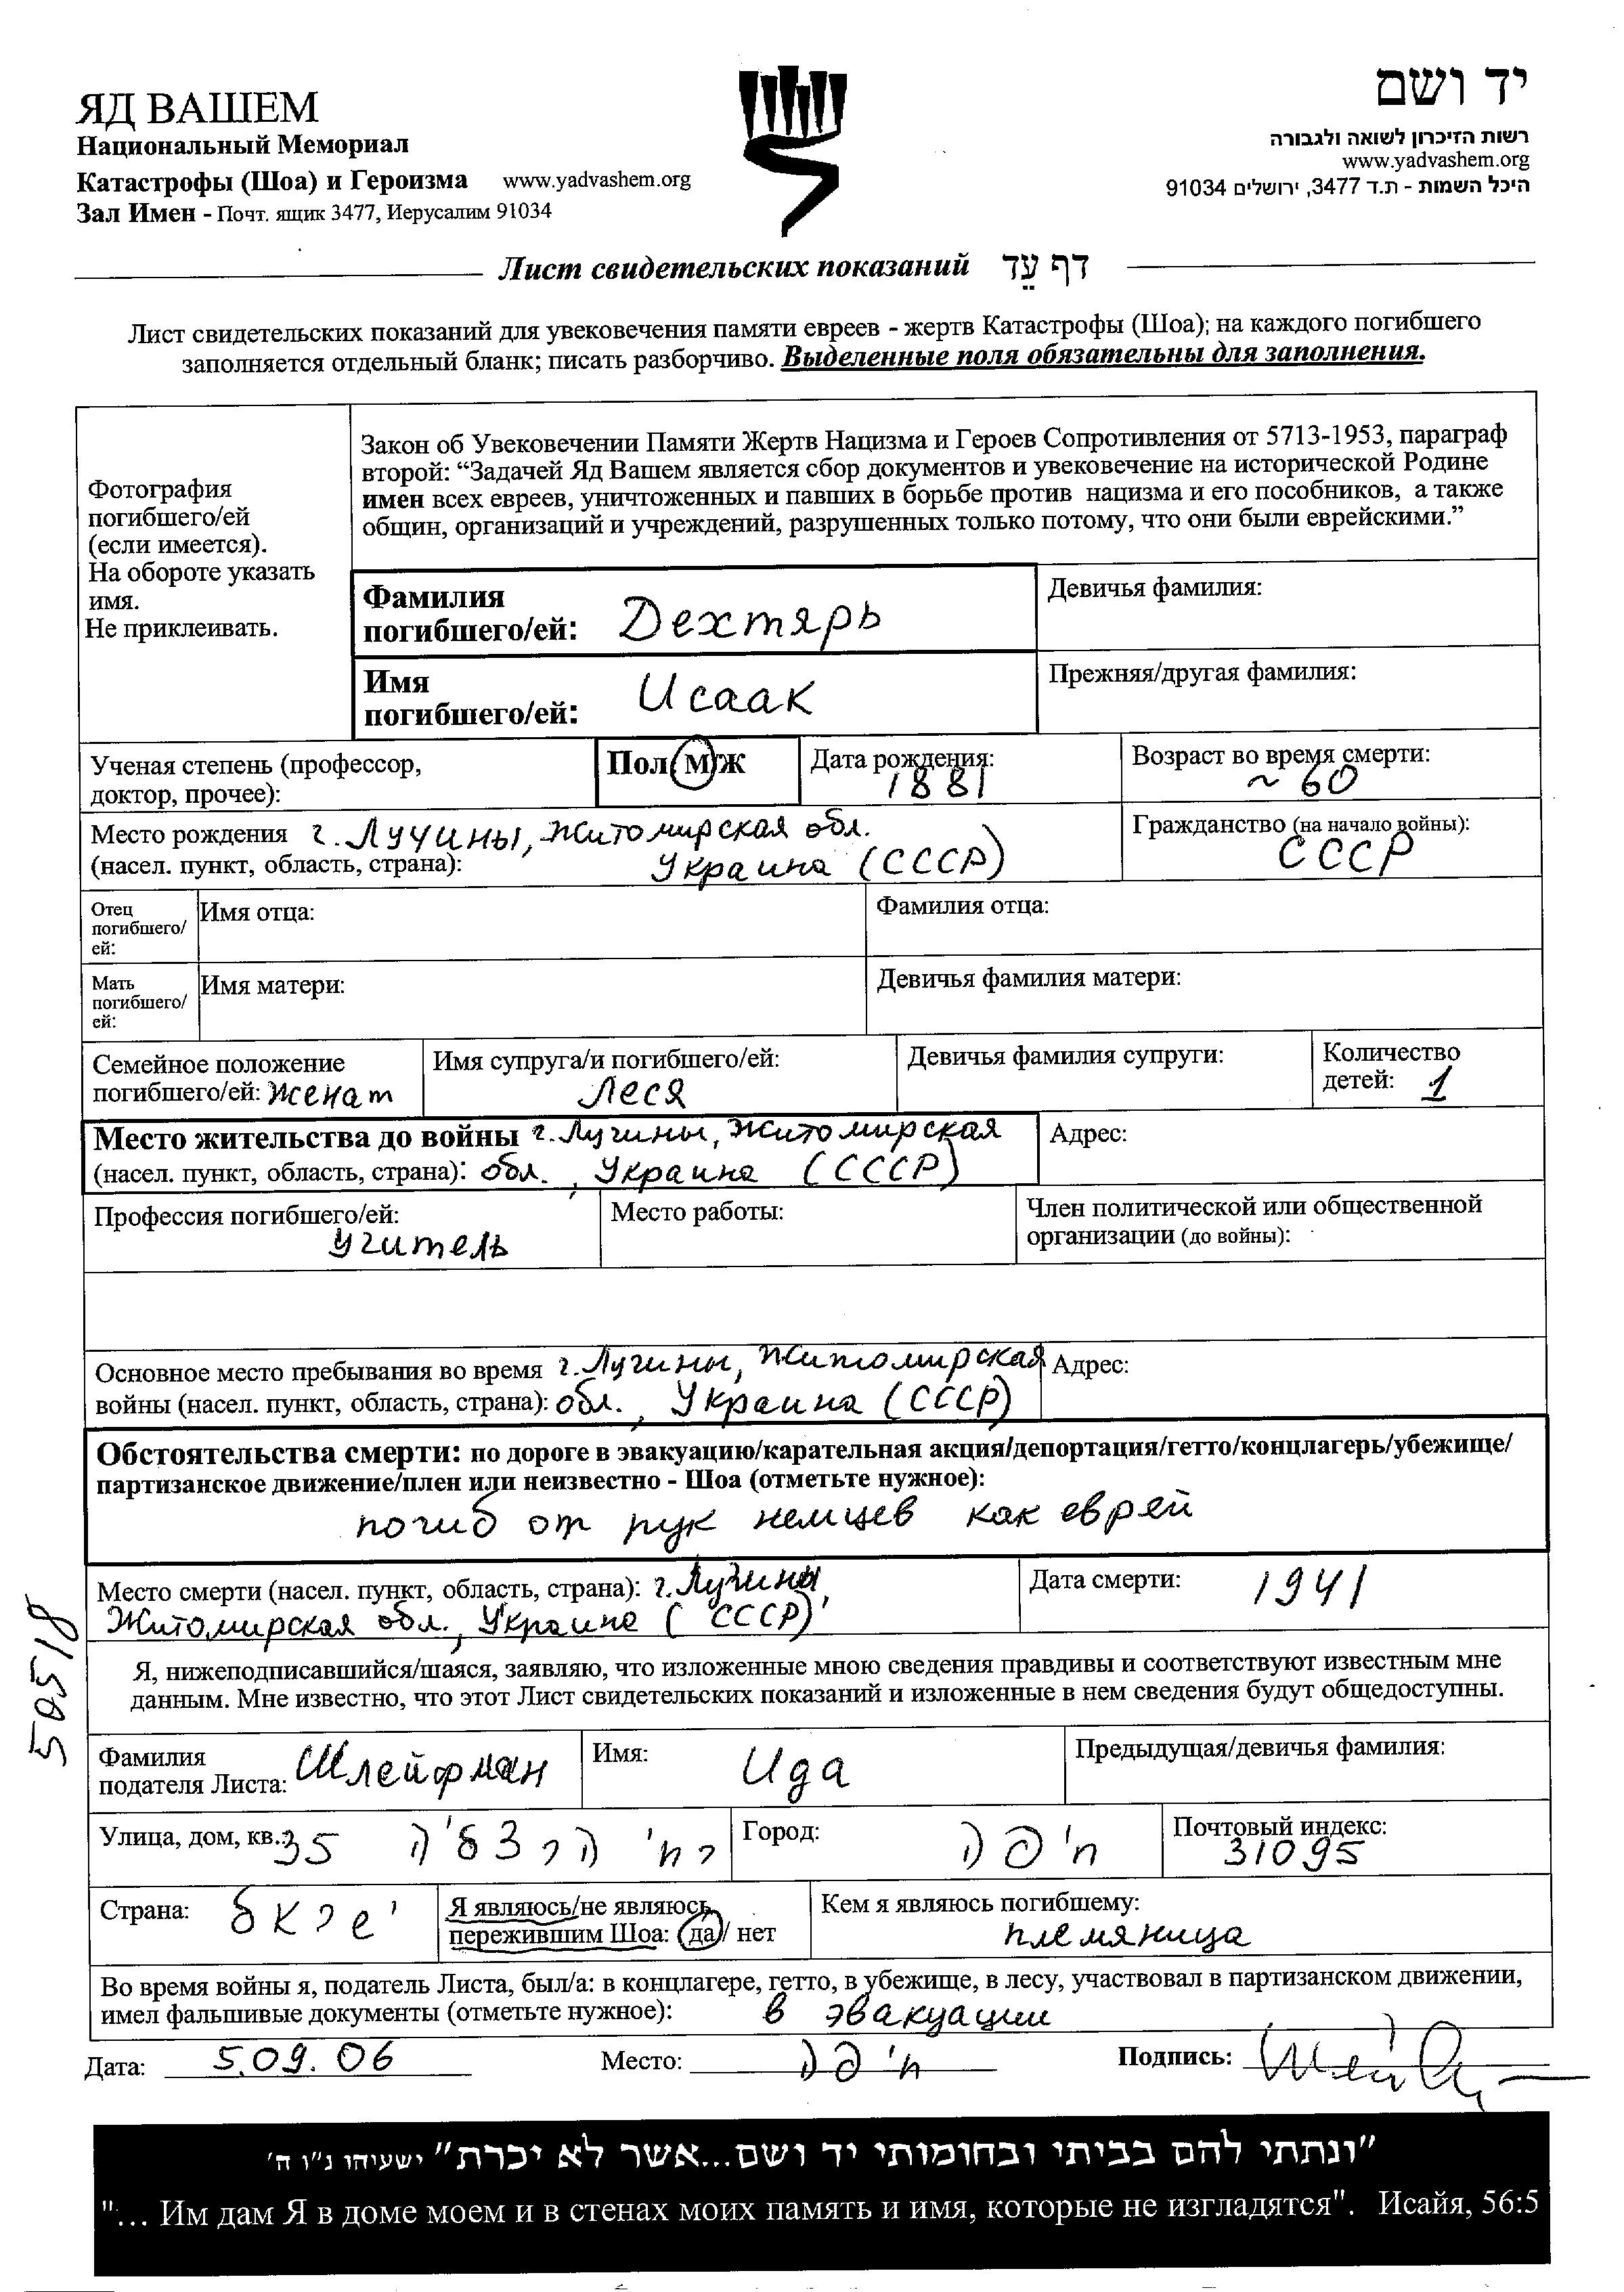 ЯД ВАШЕМ
Национальный Мемориал
Катастрофы (Шоа) и Героизма www.yadvashem.org
Зал Имен - Почт. ящик 3477, Иерусалим 91034
יד ושם
רשות הזיכרון לשואה ולגבורה
www.yadvashem.org
היכל השמות - ת.ד 3477, ירושלים 91034
Лист свидетельских показаний דף עֵד
Лист свидетельских показаний для увековечения памяти евреев - жертв Катастрофы (Шоа); на каждого погибшего
заполняется отдельный бланк; писать разборчиво. Выделенные поля обязательны для заполнения.
Фотография
погибшего/ей
(если имеется).
На обороте указать
имя.
Не приклеивать.
Закон об Увековечении Памяти Жертв Нацизма и Героев Сопротивления от 5713-1953, параграф
второй: “Задачей Яд Вашем является сбор документов и увековечение на исторической Родине
имен всех евреев, уничтоженных и павших в борьбе против нацизма и его пособников, а также
общин, организаций и учреждений, разрушенных только потому, что они были еврейскими.”
Фамилия
погибшего/ей: Дехтярь
Девичья фамилия:
Имя
погибшего/ей: Исаак
Прежняя/другая фамилия:
Ученая степень (профессор,
доктор, прочее):
Пол М/Ж
Дата рождения:
1881
Возраст во время смерти:
~ 60
Место рождения г. Лучины, Житомирская обл.
(насел. пункт, область, страна): Украина (СССР)
Гражданство (на начало войны):
СССР
Отец
погибшего/
ей:
Имя отца:
Фамилия отца:
Мать
погибшего/
ей:
Имя матери:
Девичья фамилия матери:
Семейное положение
погибшего/ей: женат
Имя супруга/и погибшего/ей:
Леся
Девичья фамилия супруги:
Количество
детей: 1
Место жительства до войны г. Лугины, Житомирская
(насел. пункт, область, страна): обл., Украина (СССР)
Адрес:
Профессия погибшего/ей:
учитель
Место работы:
Член политической или общественной
организации (до войны):
Основное место пребывания во время г. Лугины, Житомирская
войны (насел. пункт, область, страна): обл., Украина (СССР)
Адрес:
Обстоятельства смерти: по дороге в эвакуацию/карательная акция/депортация/гетто/концлагерь/убежище/
партизанское движение/плен или неизвестно - Шоа (отметьте нужное):
погиб от рук немцев как еврей
Место смерти (насел. пункт, область, страна): г. Лучины,
Житомирская обл., Украина (СССР)
Дата смерти: 1941
50518
Я, нижеподписавшийся/шаяся, заявляю, что изложенные мною сведения правдивы и соответствуют известным мне
данным. Мне известно, что этот Лист свидетельских показаний и изложенные в нем сведения будут общедоступны.
Фамилия
подателя Листа: Шлейфман
Имя: Ида
Предыдущая/девичья фамилия:
Улица, дом, кв.: 35 הרצליה רח'
Город: חיפה
Почтовый индекс:
31095
Страна: ישראל
Я являюсь/не являюсь
пережившим Шоа: да/ нет
Кем я являюсь погибшему:
племяница
Во время войны я, податель Листа, был/а: в концлагере, гетто, в убежище, в лесу, участвовал в партизанском движении,
имел фальшивые документы (отметьте нужное): в эвакуации
Дата: 5.09.06 Место: חיפה Подпись:
"ונתתי להם בביתי ובחומותי יד ושם...אשר לא יכרת" ישעיהו נ"ו ה'
"… Им дам Я в доме моем и в стенах моих память и имя, которые не изгладятся". Исайя, 56:5